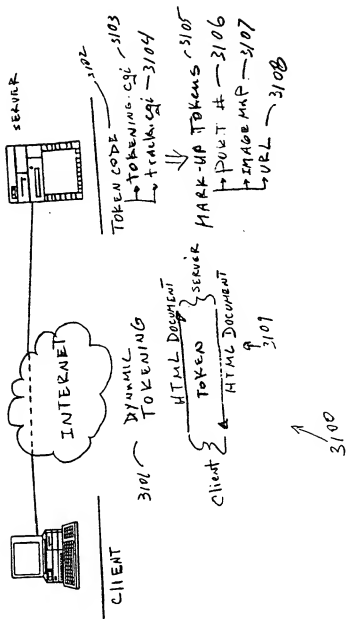 CLIENT
INTERNET
SERVER
3101
DYNAMIC
TOKENING
Client
HTML DOCUMENT
TOKEN
HTML DOCUMENT
SERVER
3109
3100
TOKEN CODE 3102
TOKENING.cgi 3103
track.cgi 3104
MARK-UP TOKENS 3105
PORT # 3106
IMAGE MAP 3107
URL 3108